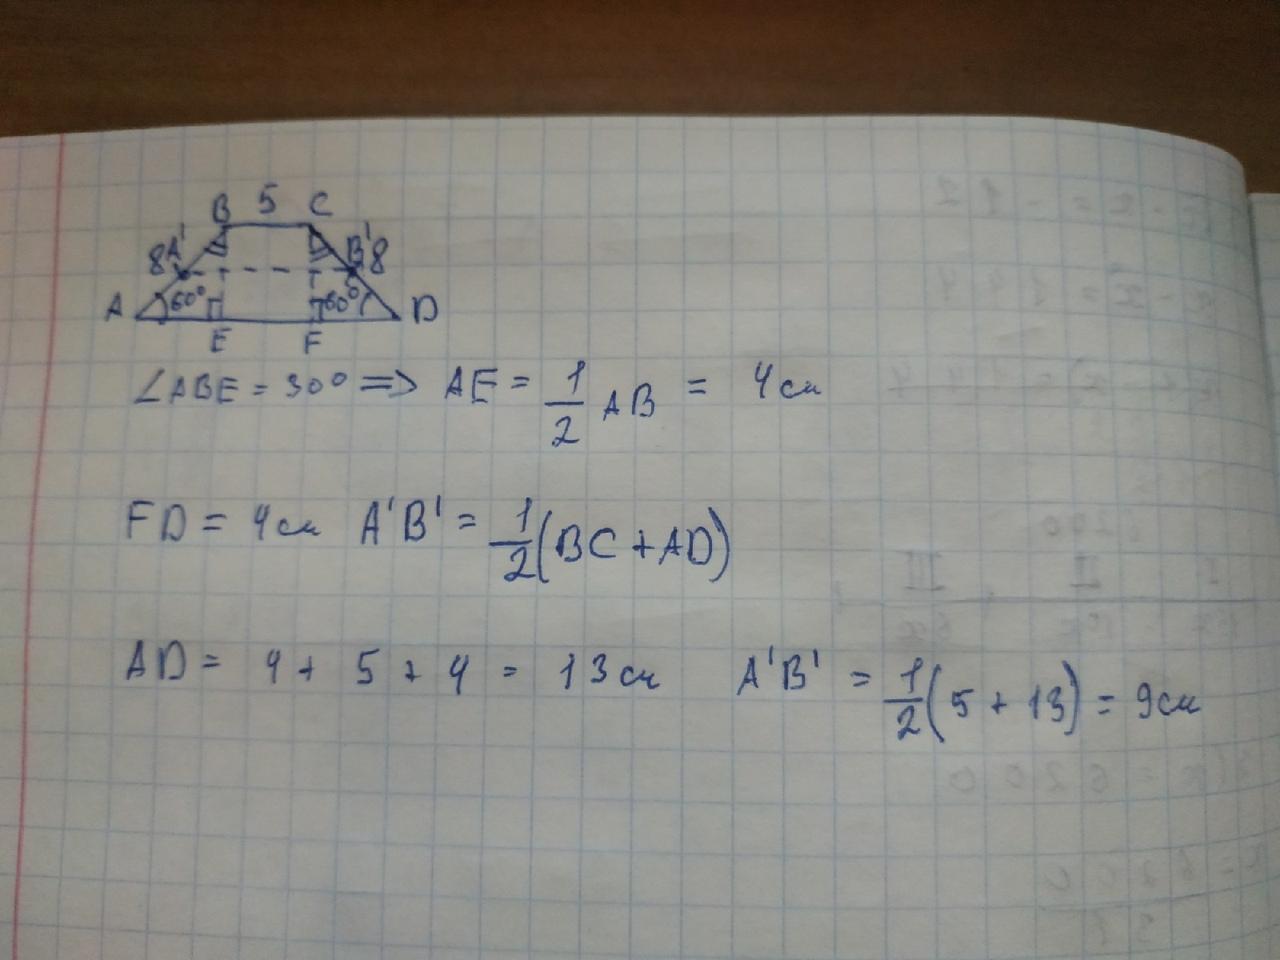 B 5 C
8 A' B' 8
A 60° 60° D
E F
∠ABE = 30° => AE = 1/2 AB = 4 см
FD = 4 см A'B' = 1/2 (BC + AD)
AD = 4 + 5 + 4 = 13 см A'B' = 1/2 (5 + 13) = 9 см